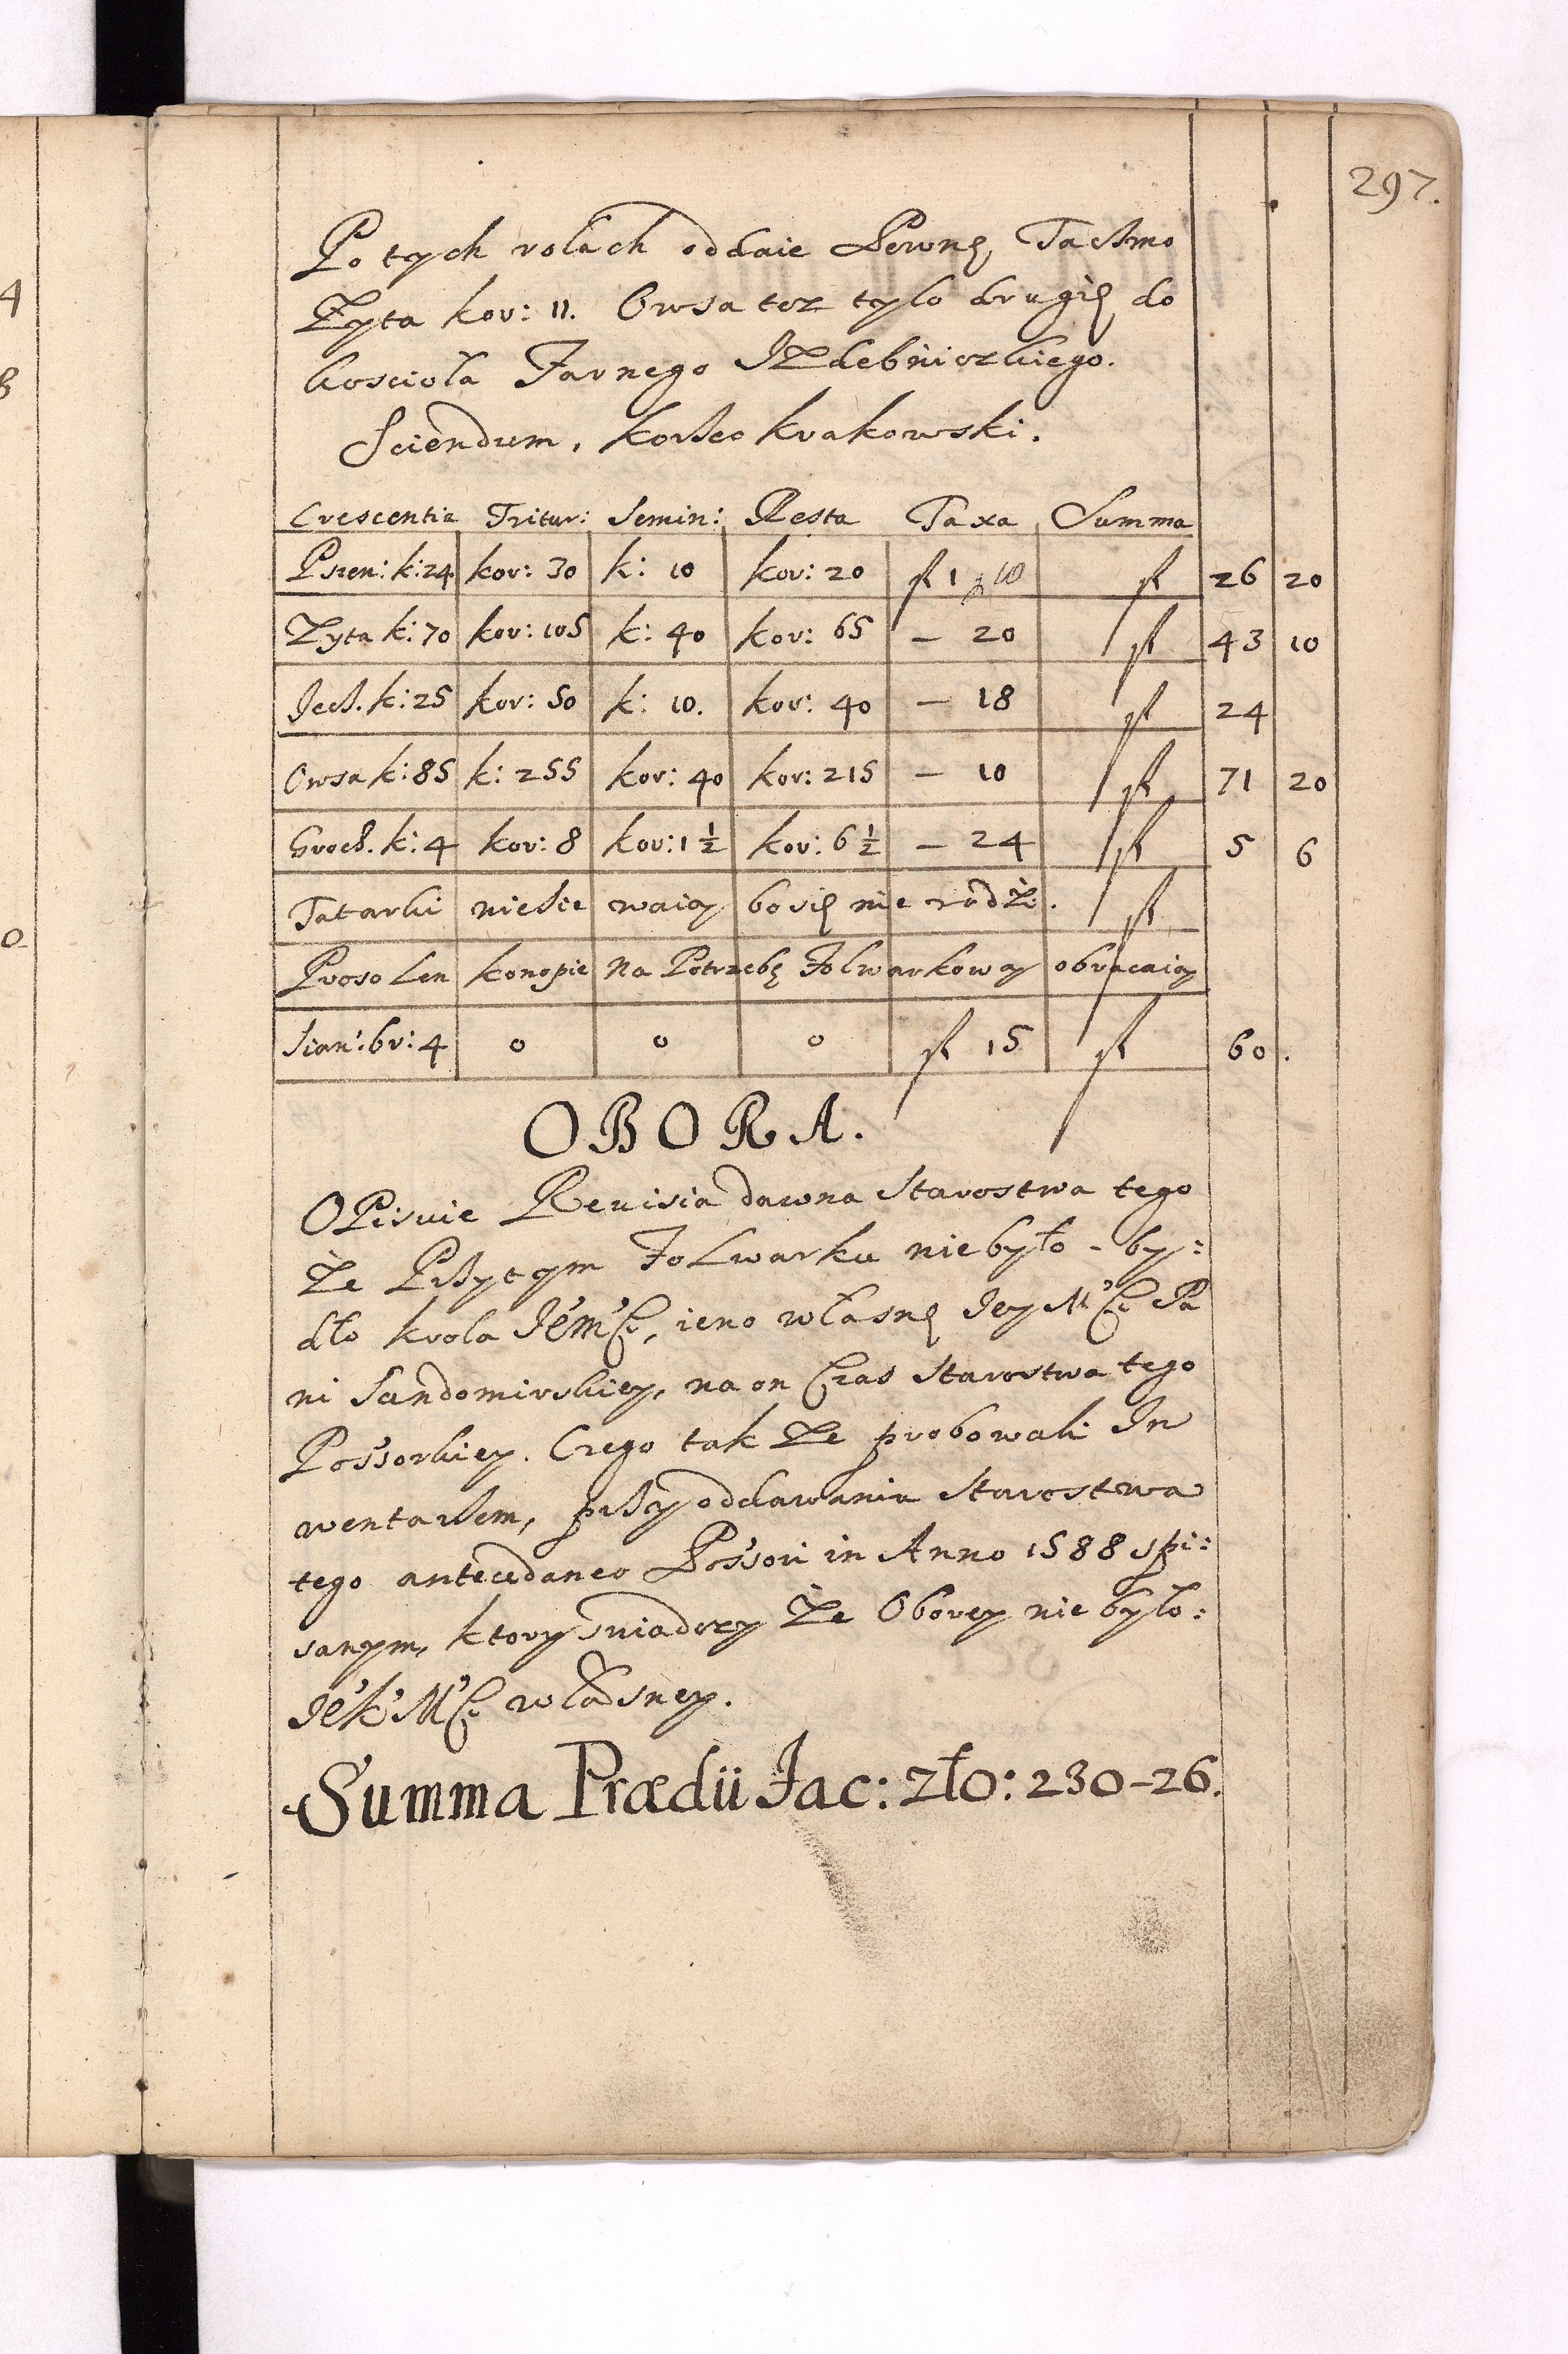 297.
Po tych rolach oddaie Pewnę Taśmo
Zyta kor: 11. Owsa tez tylo drugię do
koscioła Farnego Izdebniczkiego.
Sciendum, korzec krakowski.
Crescentia Tritur: Semin: Resta Taxa Summa
Pszen: k: 24. kor: 30 k: 10 kor: 20 fl 1 g 10 fl 26 20
Zyta k: 70 kor: 105 k: 40 kor: 65 – 20 fl 43 10
Ięcz. k: 25 kor: 50 k: 10. kor: 40 – 18 fl 24
Owsa k: 85 k: 255 kor: 40 kor: 215 – 10 fl 71 20
Groch. k: 4 kor: 8 kor: 1 ½ kor: 6 ½ – 24 fl 5 6
Tatarki niesie waią bo się nie rodzi. fl
Proso Len konopie na Potrzebę Folwarkową obracaią
Sian: br: 4 0 0 0 fl 15 fl 60.
OBORA.
OPisuie Reuisia dawna Starostwa tego
że Przytym Folwarku niebyło - by:
dło krola Ie͛m͛Ci, ieno własnę Iey M͛Ci Pa
ni Sandomirskiey, na on Czas Starostwa tego
Possorkiey. Czego tak że probowali In
wentarzem, przy oddawaniu Starostwa
tego antecedaneo Possori in Anno 1588 spi:
sanym, ktory swiadczy że Oborey nie było:
Ie͛k͛ M͛Ci własney.
Summa Prædii Iac: zło: 230-26.
4
8
0